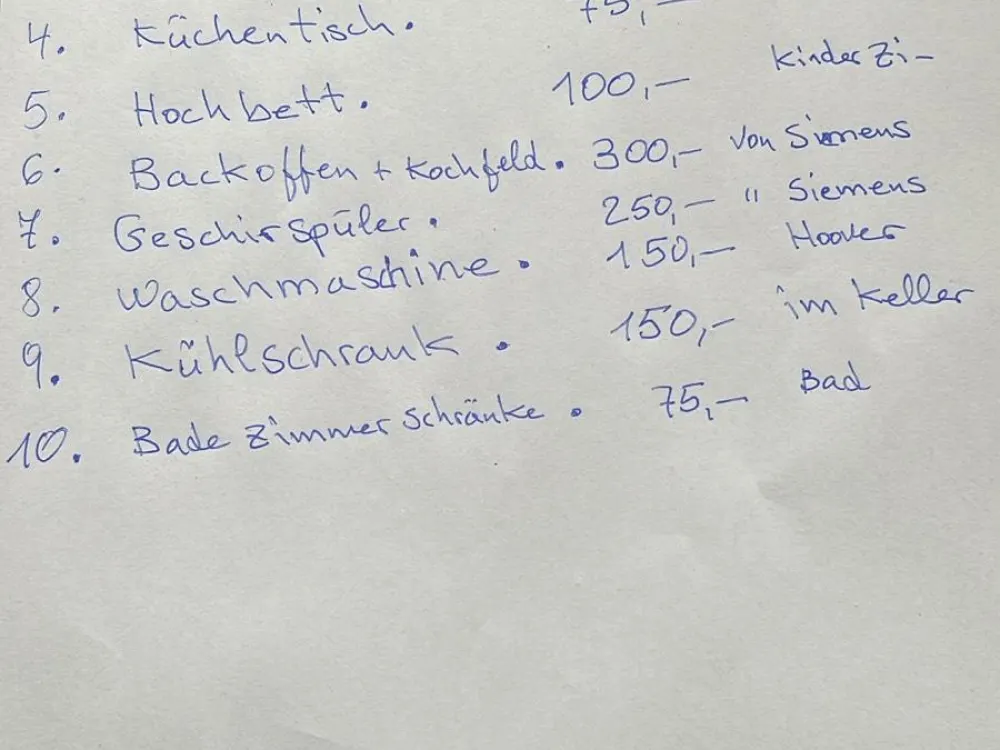 4. Küchentisch. 75,-
5. Hochbett. 100,- Kinder Zi-
6. Backoffen + Kochfeld. 300,- von Siemens
7. Geschirspüler. 250,- " Siemens
8. Waschmaschine. 150,- Hoover
9. Kühlschrank. 150,- im Keller
10. Bade Zimmer Schränke. 75,- Bad